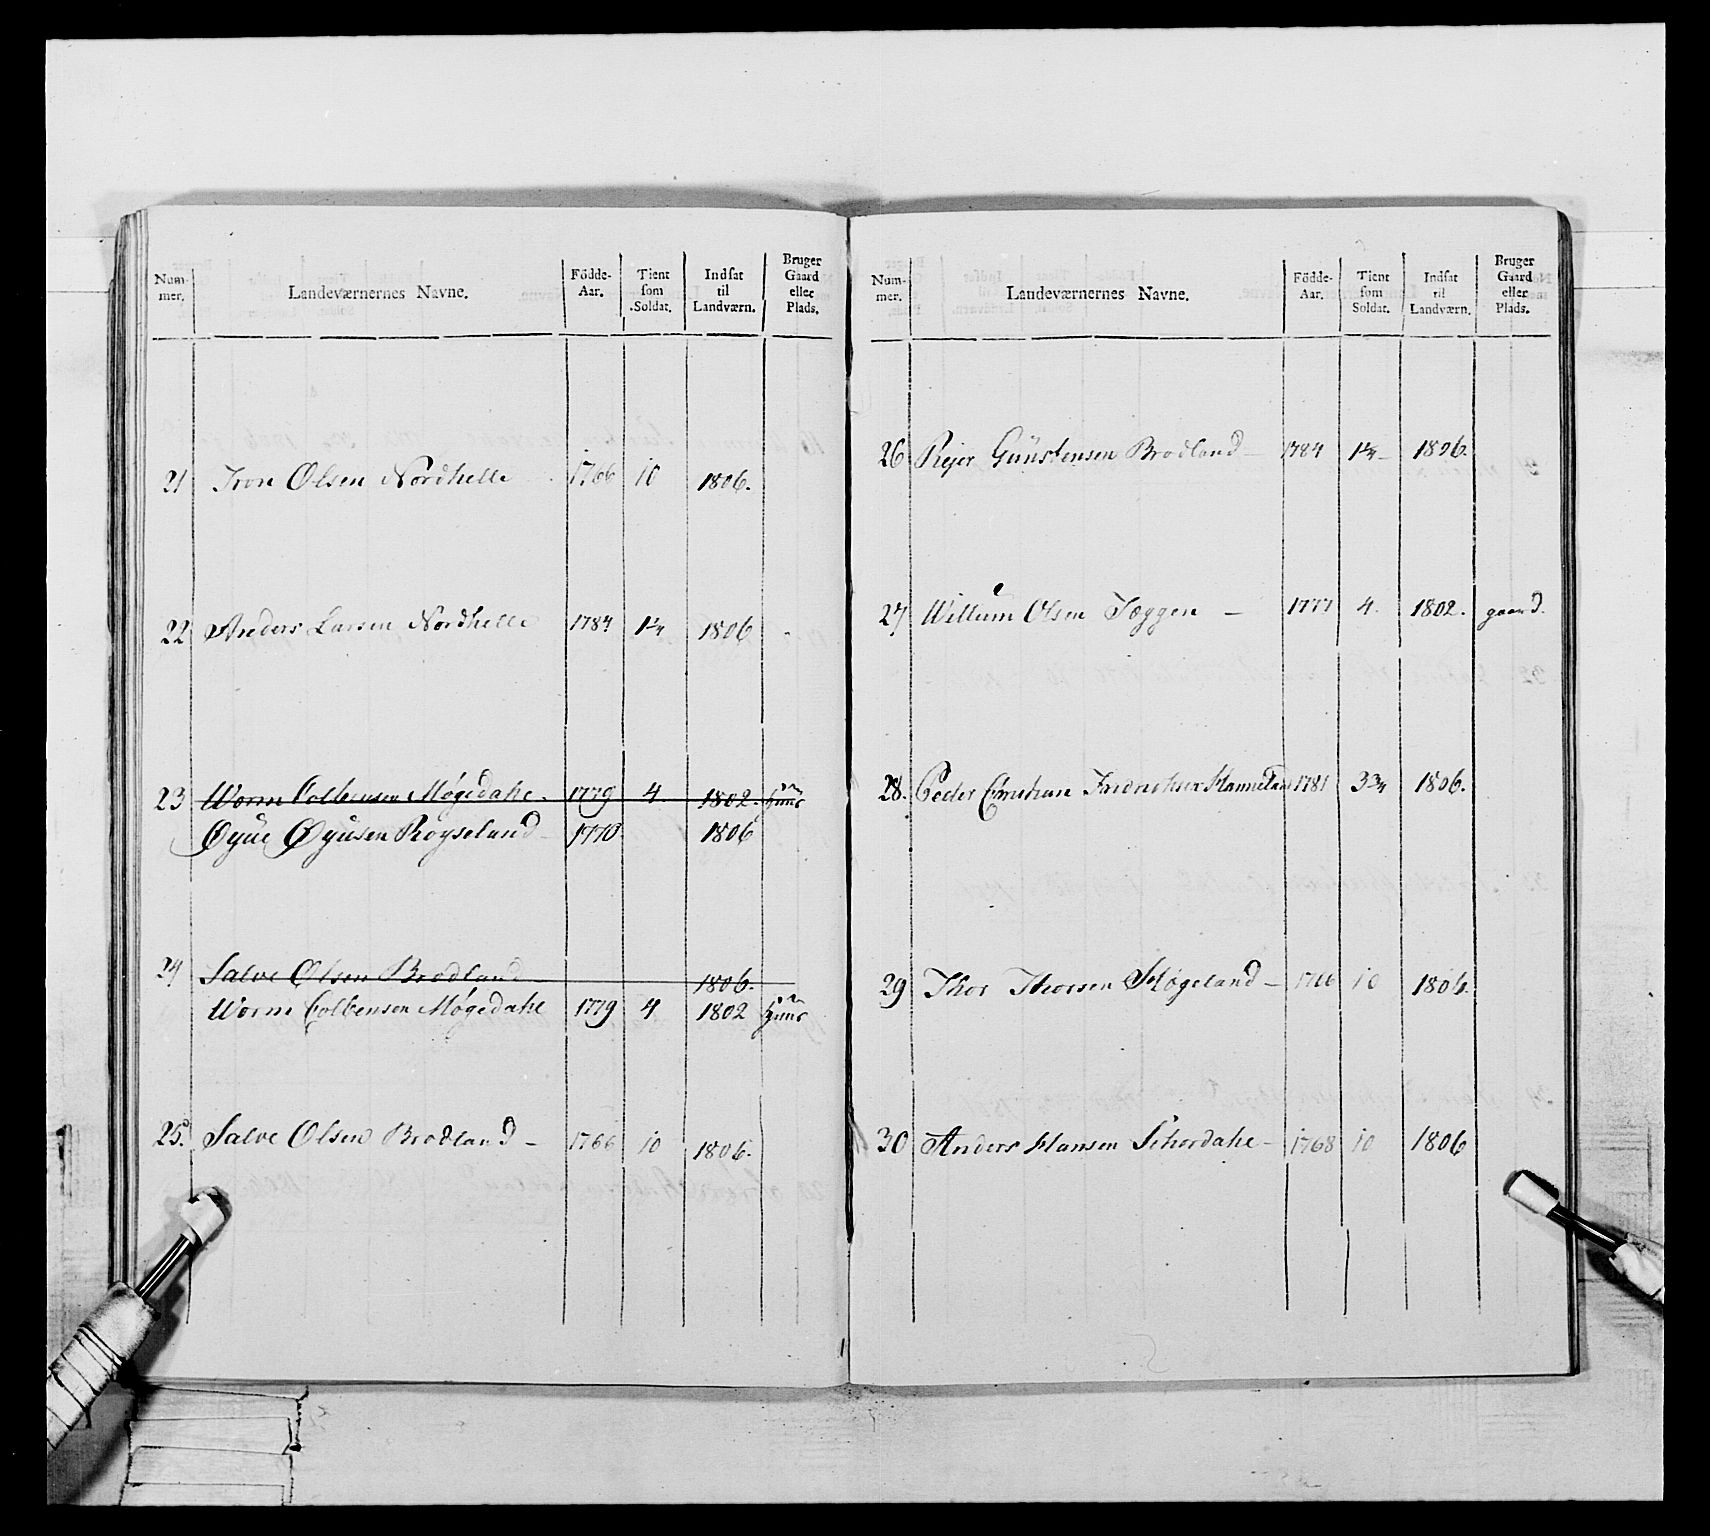 Num-
mer.
Landeværnernes Navne.
Födde-
Aar.
Tient
som
Soldat.
Indsat
til
Landværn.
Bruger
Gaard
eller
Plads.
21 Iver Olsen Nordhelle 1766 10 1806.
22 Anders Larsen Nordhelle 1784 1¼ 1806
23 Worm Colbensen Møgedahl. 1779 4 1802. huus
Øyue Øyusen Røyseland 1770 1806
24 Salve Olsen Brodland 1806.
Worm Colbensen Møgedahl 1779 4 1802 huus
25. Salve Olsen Brodland – 1766 10 1806.
Num-
mer.
Landeværnernes Navne.
Födde-
Aar.
Tient
som
Soldat.
Indsat
til
Landværn.
Bruger
Gaard
eller
Plads.
26 Rejer Gunstensen Brodland – 1784 1¼ – 1806.
27 Willum Olsen Tæggen – 1777 4. 1802. gaard.
28. Peder Christian 1781 3¾ 1806.
29 Thor Thorsen Høgeland – 1766 10 1806.
30 Anders Hansen Schordahl – 1768 10 1806